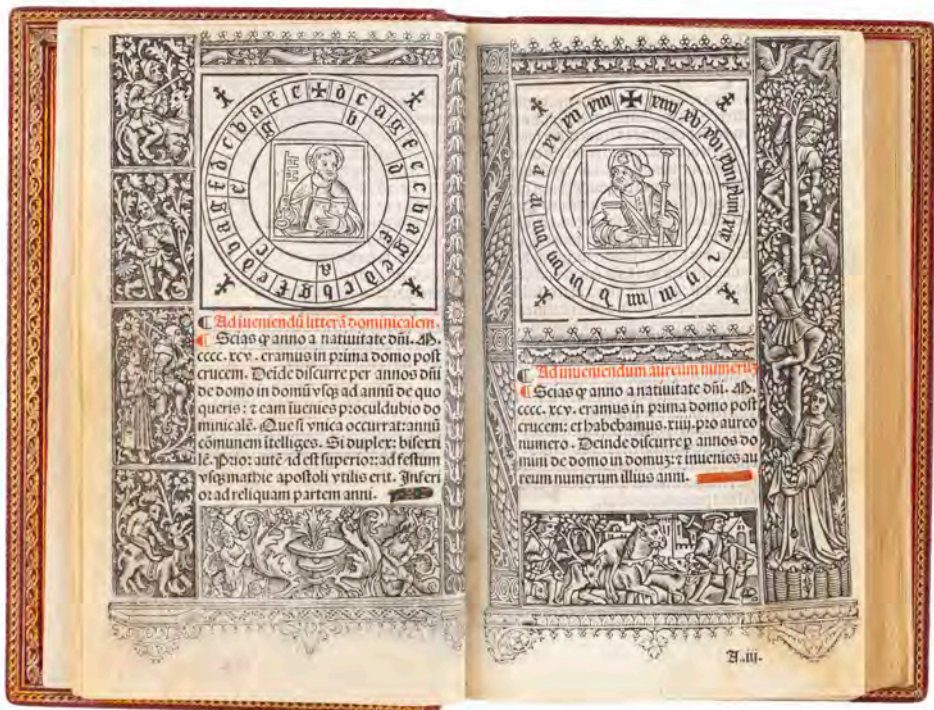 ✠ d c a g f e c b a g e d c b g f e d b a g f d c b a f e
b d f a c e g
¶ Ad īueniendū litterā dominicalem.
¶ Scias ꝙ anno a natiuitate dñi. M.
cccc. xcv. eramus in prima domo post
crucem. Deīde discurre per annos dñi
de domo in domū vsqꝫ ad annū de quo
queris: ⁊ eam īuenies proculdubio do
minicalē. Que si vnica occurrat: annū
cōmunem ītelliges. Si duplex: bisexti
lē. Prior autē id est superior: ad festum
vsqꝫ mathie apostoli vtilis erit. Inferi
or ad reliquam partem anni.
✠ xiiij xv xvi xvii xviii xix i ii iii iiii v vi vii viii ix x xi xii xiii
¶ Ad inueniendum aureum numeruꝫ
¶ Scias ꝙ anno a natiuitate dñi. M.
cccc. xcv. eramus in prima domo post
crucem: et habebamus. xiiij. pro aureo
numero. Deinde discurre ꝑ annos do
mini de domo in domuꝫ: ⁊ inuenies au
reum numerum illius anni.
A.iij.